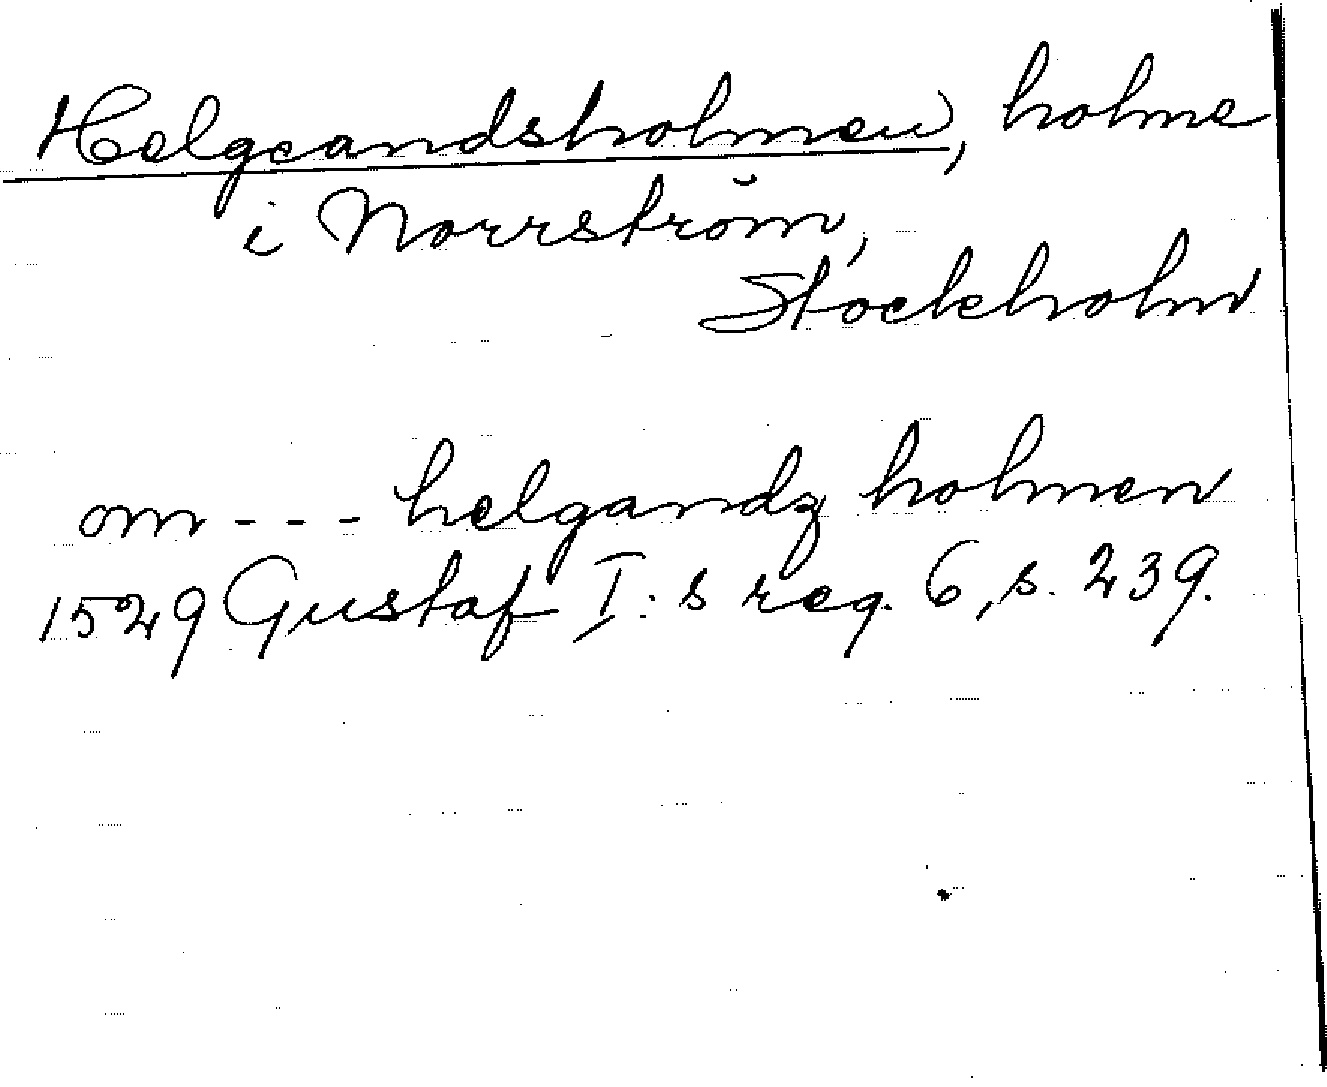 Helgeandsholmen, holme
i Norrström,
Stockholm
om - - - helgandz holmen
1529 Gustaf I:s reg. 6, s. 239.